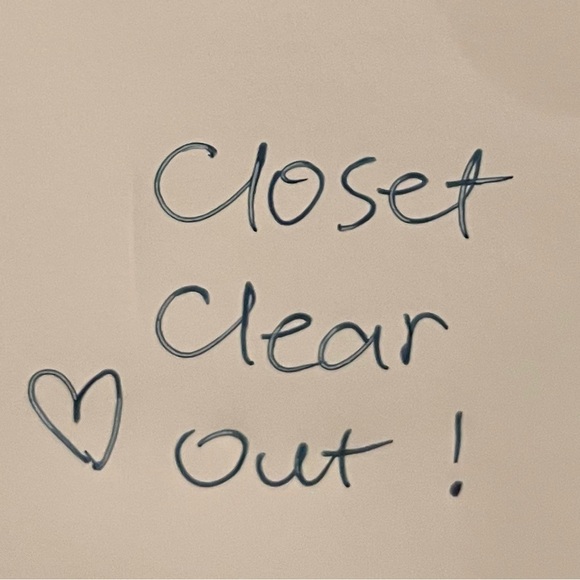 Closet
Clear
Out !